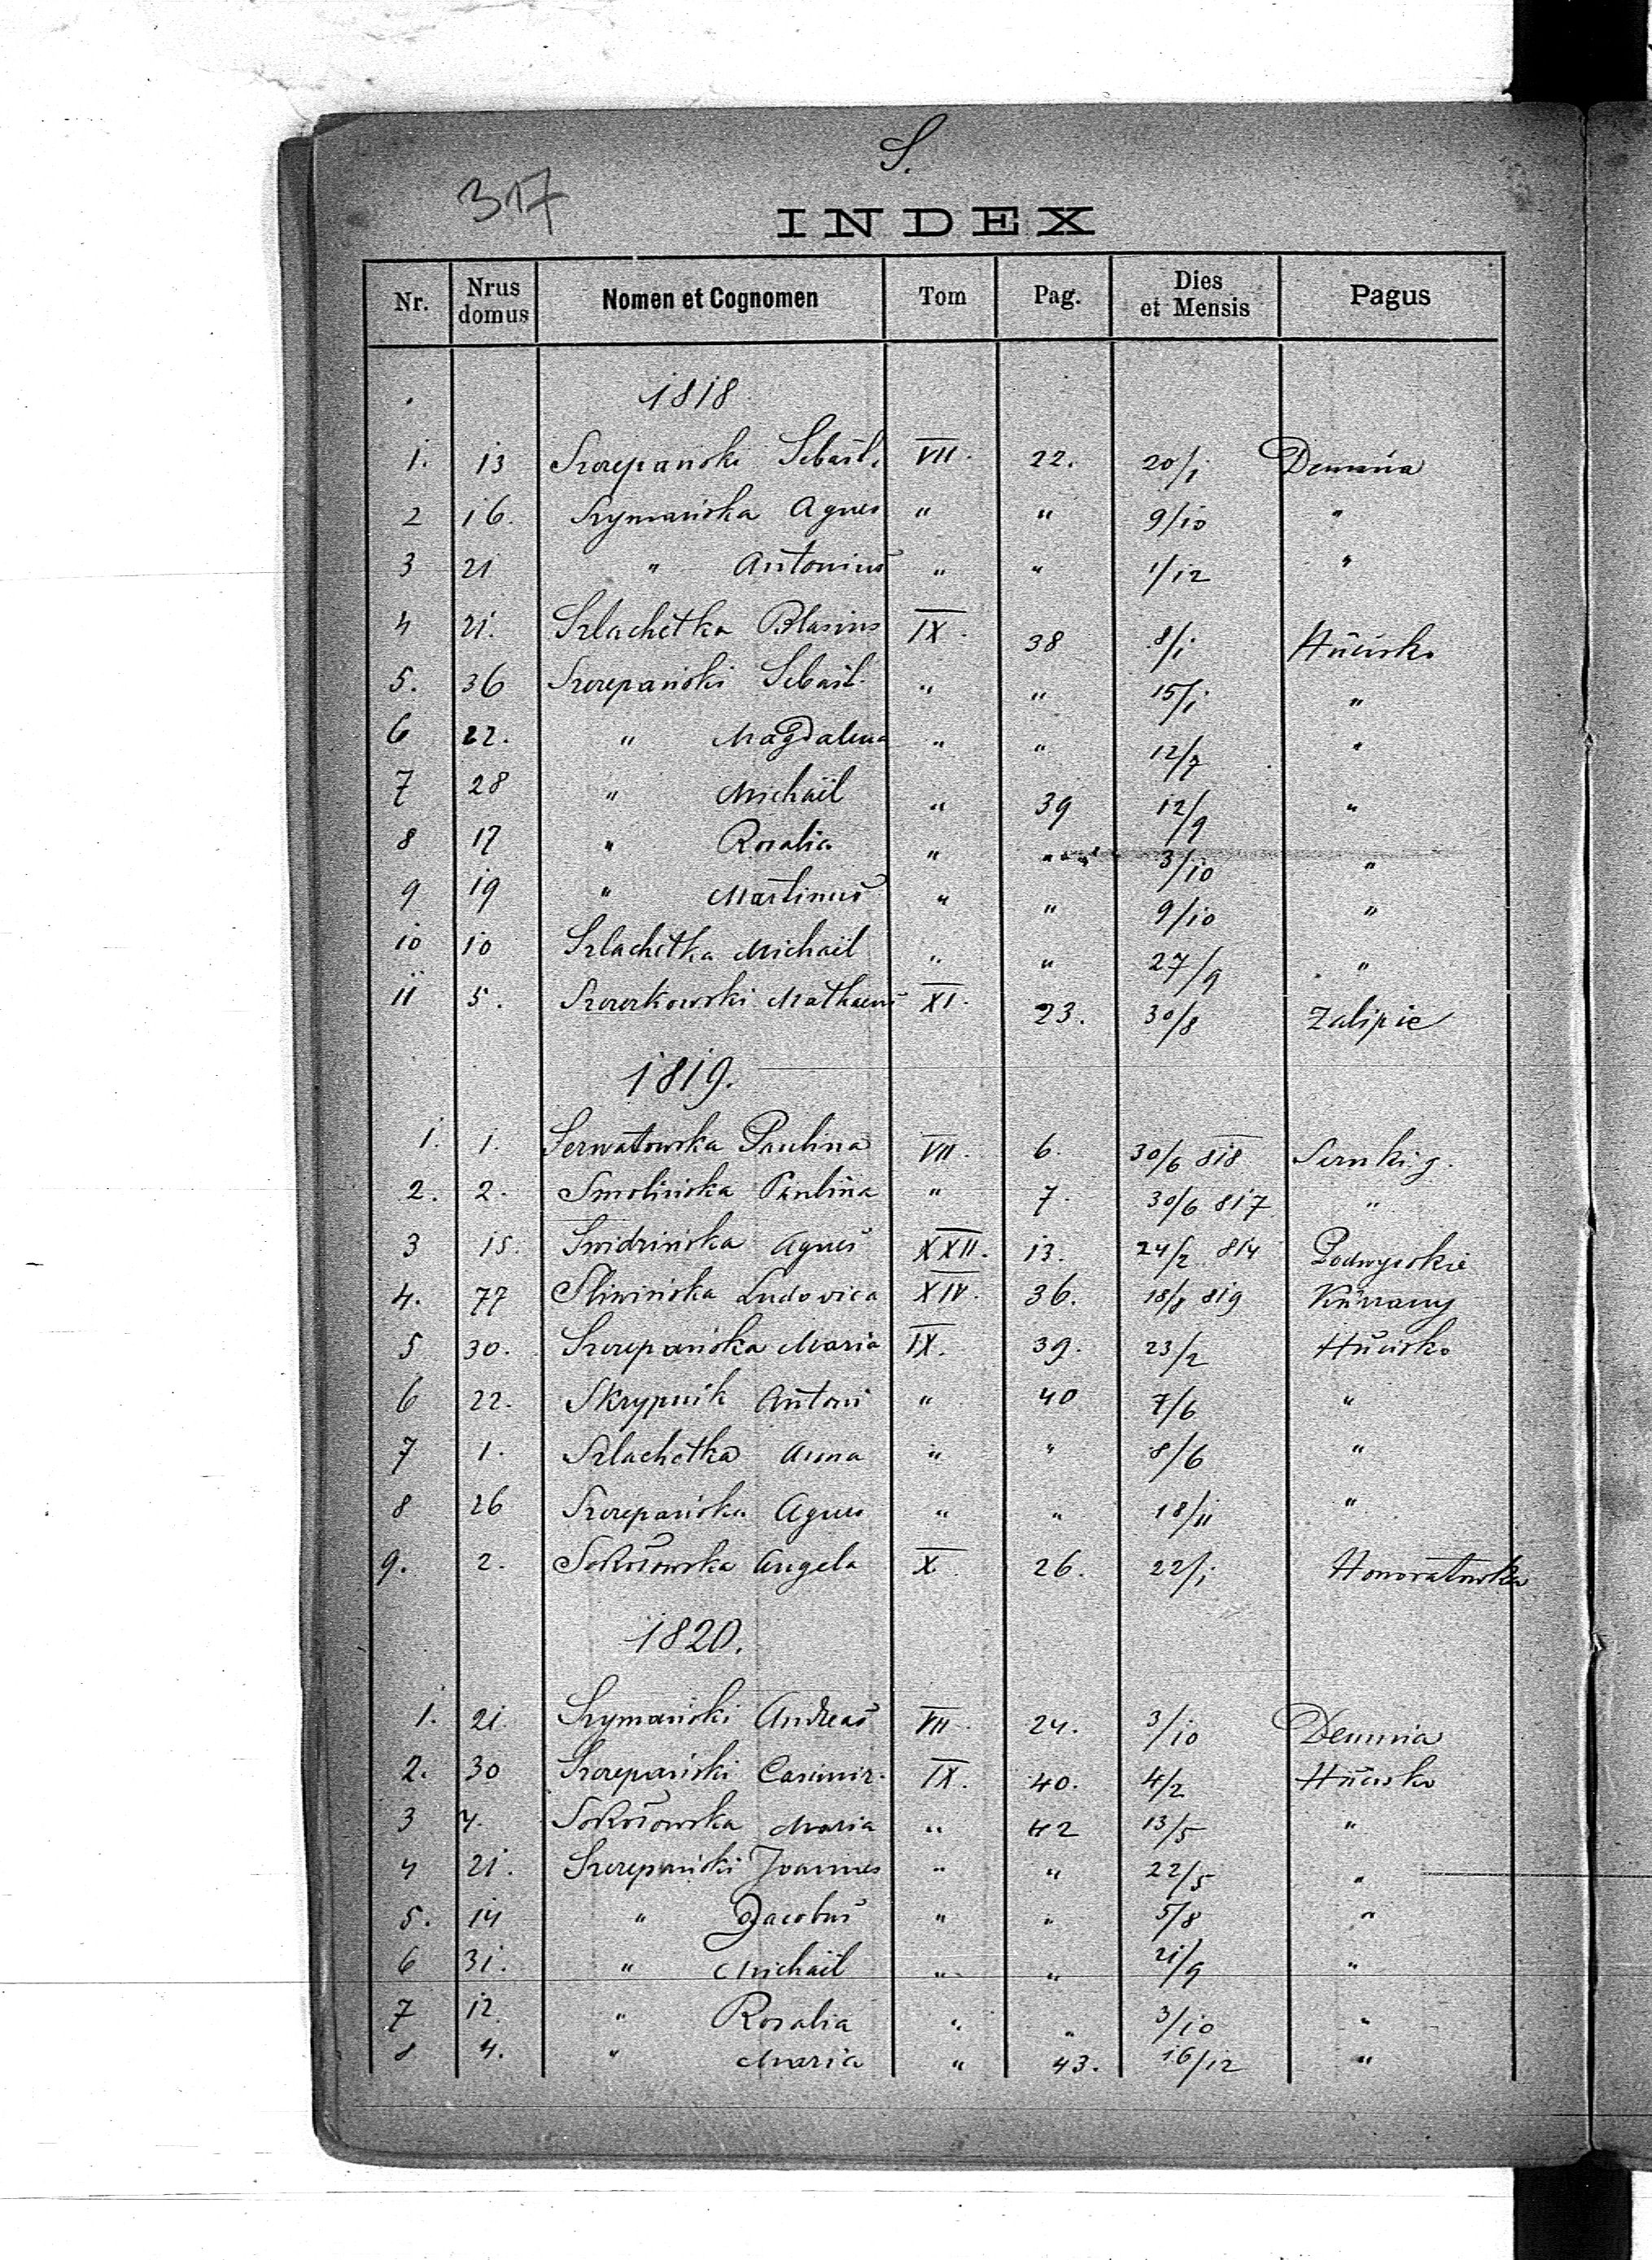 S.
317
INDEX
Nr. Nrus domus Nomen et Cognomen Tom Pag. Dies et Mensis Pagus
1818
1. 13 Szczepański Sebast. VII. 22. 20/1 Demnia
2 16. Szymańska Agnes " " 9/10 "
3 21 " Antonius " " 1/12 "
4 21. Szlachetka Blasius IX. 38 8/1 Hucisko
5. 36 Szczepański Sebast. " " 15/1 "
6 22. " Magdalena " " 12/7 "
7 28 " Michaël " 39 12/9 "
8 17 " Rosalia " " 3/10 "
9 19 " Martinus " " 9/10 "
10 10 Szlachetka Michaël " " 27/9 "
11 5. Szczerkowski Mathaeus XI. 23. 30/8 Zalipie
1819.
1. 1. Serwatowska Paulina VII. 6. 30/6 818
2. 2. Smolińska Paulina " 7. 30/6 817 "
3 15. Swidzińska Agnes XXII. 13. 24/2 814 Podwysokie
4. 77 Śliwińska Ludovica XIV. 36. 18/8 819 Kurzany
5 30. Szczepańska Maria IX. 39. 23/2 Hucisko
6 22. Skrypnik Antoni " 40 7/6 "
7 1. Szlachetka Anna " " 8/6 "
8 26 Szczepańska Agnes " " 18/11 "
9. 2. Sokołowska Angela X. 26. 22/1 Honoratówka
1820.
1. 21. Szymański Andreas VII. 24. 3/10 Demnia
2. 30 Szczepański Casimir. IX. 40. 4/2 Hucisko
3 4. Sokołowska Maria " 42 13/5 "
4 21. Szczepański Joannes " " 22/5 "
5. 14 " Jacobus " " 5/8 "
6 31. " Michaël " " 21/9 "
7 12. " Rosalia " " 3/10 "
8 4. " Maria " 43. 16/12 "